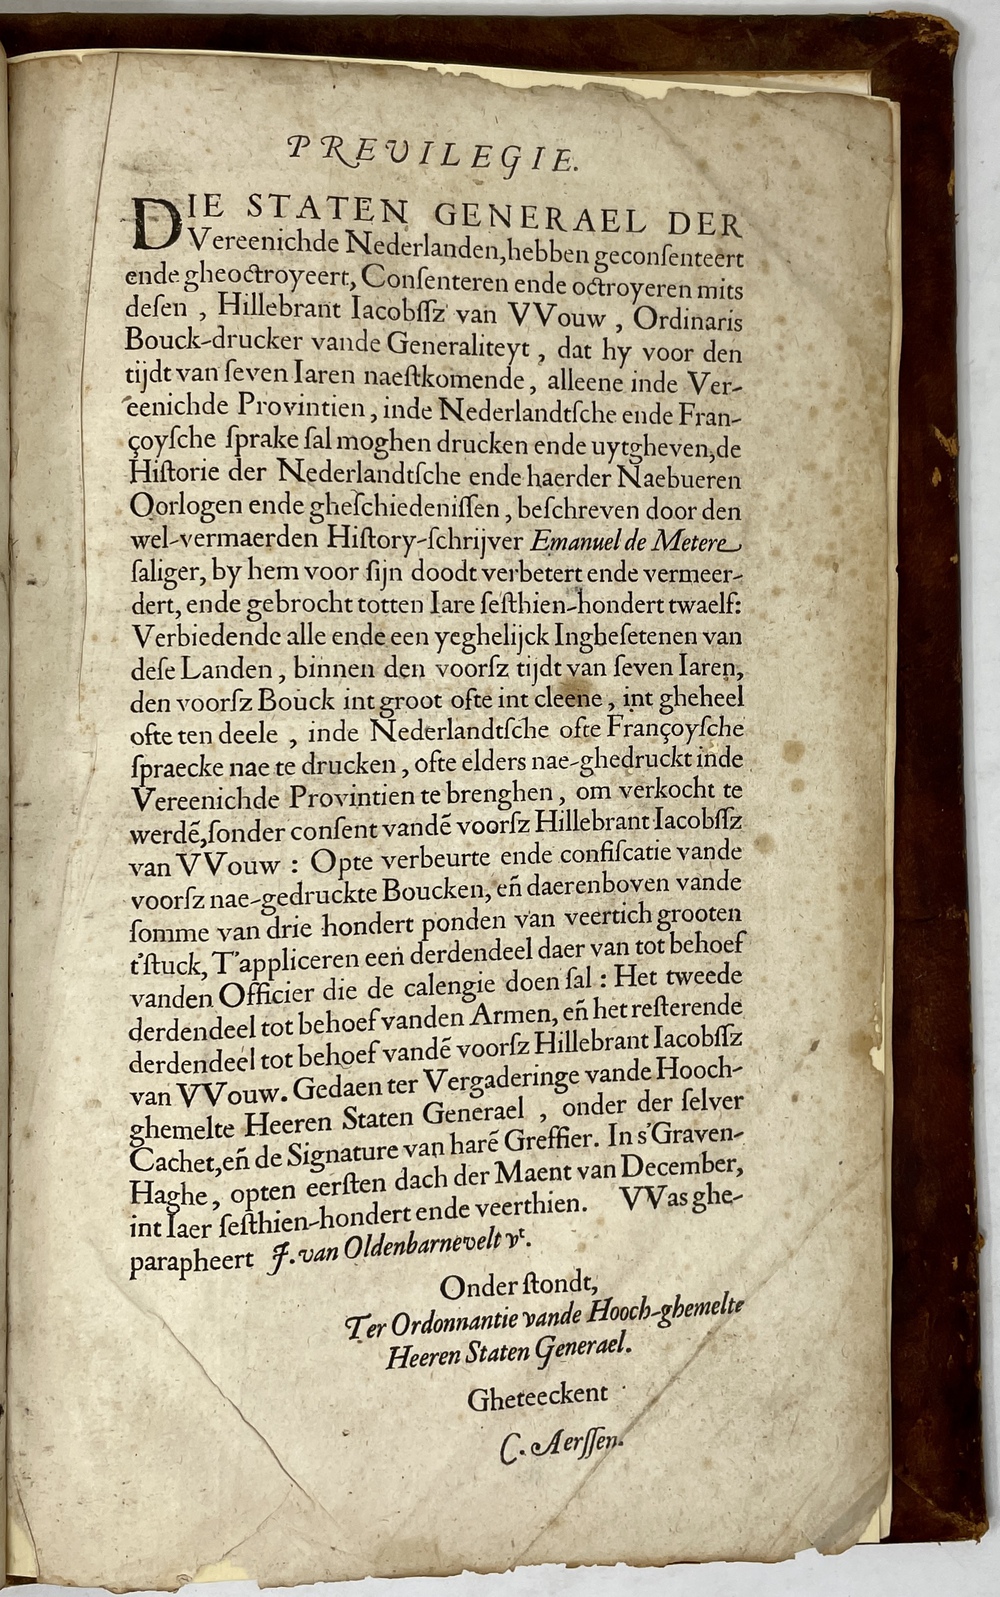 PREVILEGIE.
DIE STATEN GENERAEL DER
Vereenichde Nederlanden, hebben geconſenteert
ende gheoctroyeert, Conſenteren ende octroyeren mits
deſen , Hillebrant Iacobſſz van VVouw , Ordinaris
Bouck-drucker vande Generaliteyt , dat hy voor den
tijdt van ſeven Iaren naeſtkomende , alleene inde Ver-
eenichde Provintien , inde Nederlandtſche ende Fran-
çoyſche ſprake ſal moghen drucken ende uytgheven, de
Hiſtorie der Nederlandtſche ende haerder Naebueren
Oorlogen ende gheſchiedeniſſen , beſchreven door den
wel-vermaerden Hiſtory-ſchrijver Emanuel de Metere
ſaliger, by hem voor ſijn doodt verbetert ende vermeer-
dert, ende gebrocht totten Iare ſeſthien-hondert twaelf:
Verbiedende alle ende een yeghelijck Ingheſetenen van
deſe Landen , binnen den voorſz tijdt van ſeven Iaren,
den voorſz Bouck int groot ofte int cleene , int gheheel
ofte ten deele , inde Nederlandtſche ofte Françoyſche
ſpraecke nae te drucken , ofte elders nae-ghedruckt inde
Vereenichde Provintien te brenghen , om verkocht te
werdẽ, ſonder conſent vandẽ voorſz Hillebrant Iacobſſz
van VVouw : Opte verbeurte ende confiſcatie vande
voorſz nae-gedruckte Boucken, eñ daerenboven vande
ſomme van drie hondert ponden van veertich grooten
t'ſtuck, T'appliceren een derdendeel daer van tot behoef
vanden Officier die de calengie doen ſal : Het tweede
derdendeel tot behoef vanden Armen, eñ het reſterende
derdendeel tot behoef vandẽ voorſz Hillebrant Iacobſſz
van VVouw. Gedaen ter Vergaderinge vande Hooch-
ghemelte Heeren Staten Generael , onder der ſelver
Cachet, eñ de Signature van harẽ Greffier. In s'Graven-
Haghe , opten eerſten dach der Maent van December,
int Iaer ſeſthien-hondert ende veerthien. VVas ghe-
parapheert J. van Oldenbarnevelt vt.
Onder ſtondt,
Ter Ordonnantie vande Hooch-ghemelte
Heeren Staten Generael.
Gheteeckent
C. Aerſſen.